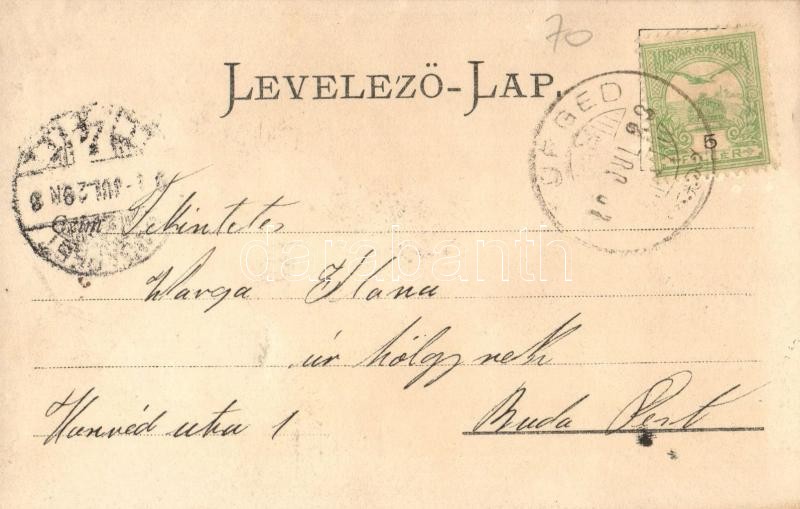 70
LEVELEZŐ-LAP.
MAGYAR KIR. POSTA
5
FILLÉR
Czim
Tekintetes
Varga Ilona
úr hölgynek
Honvéd utca 1
Buda Pest
darabanth